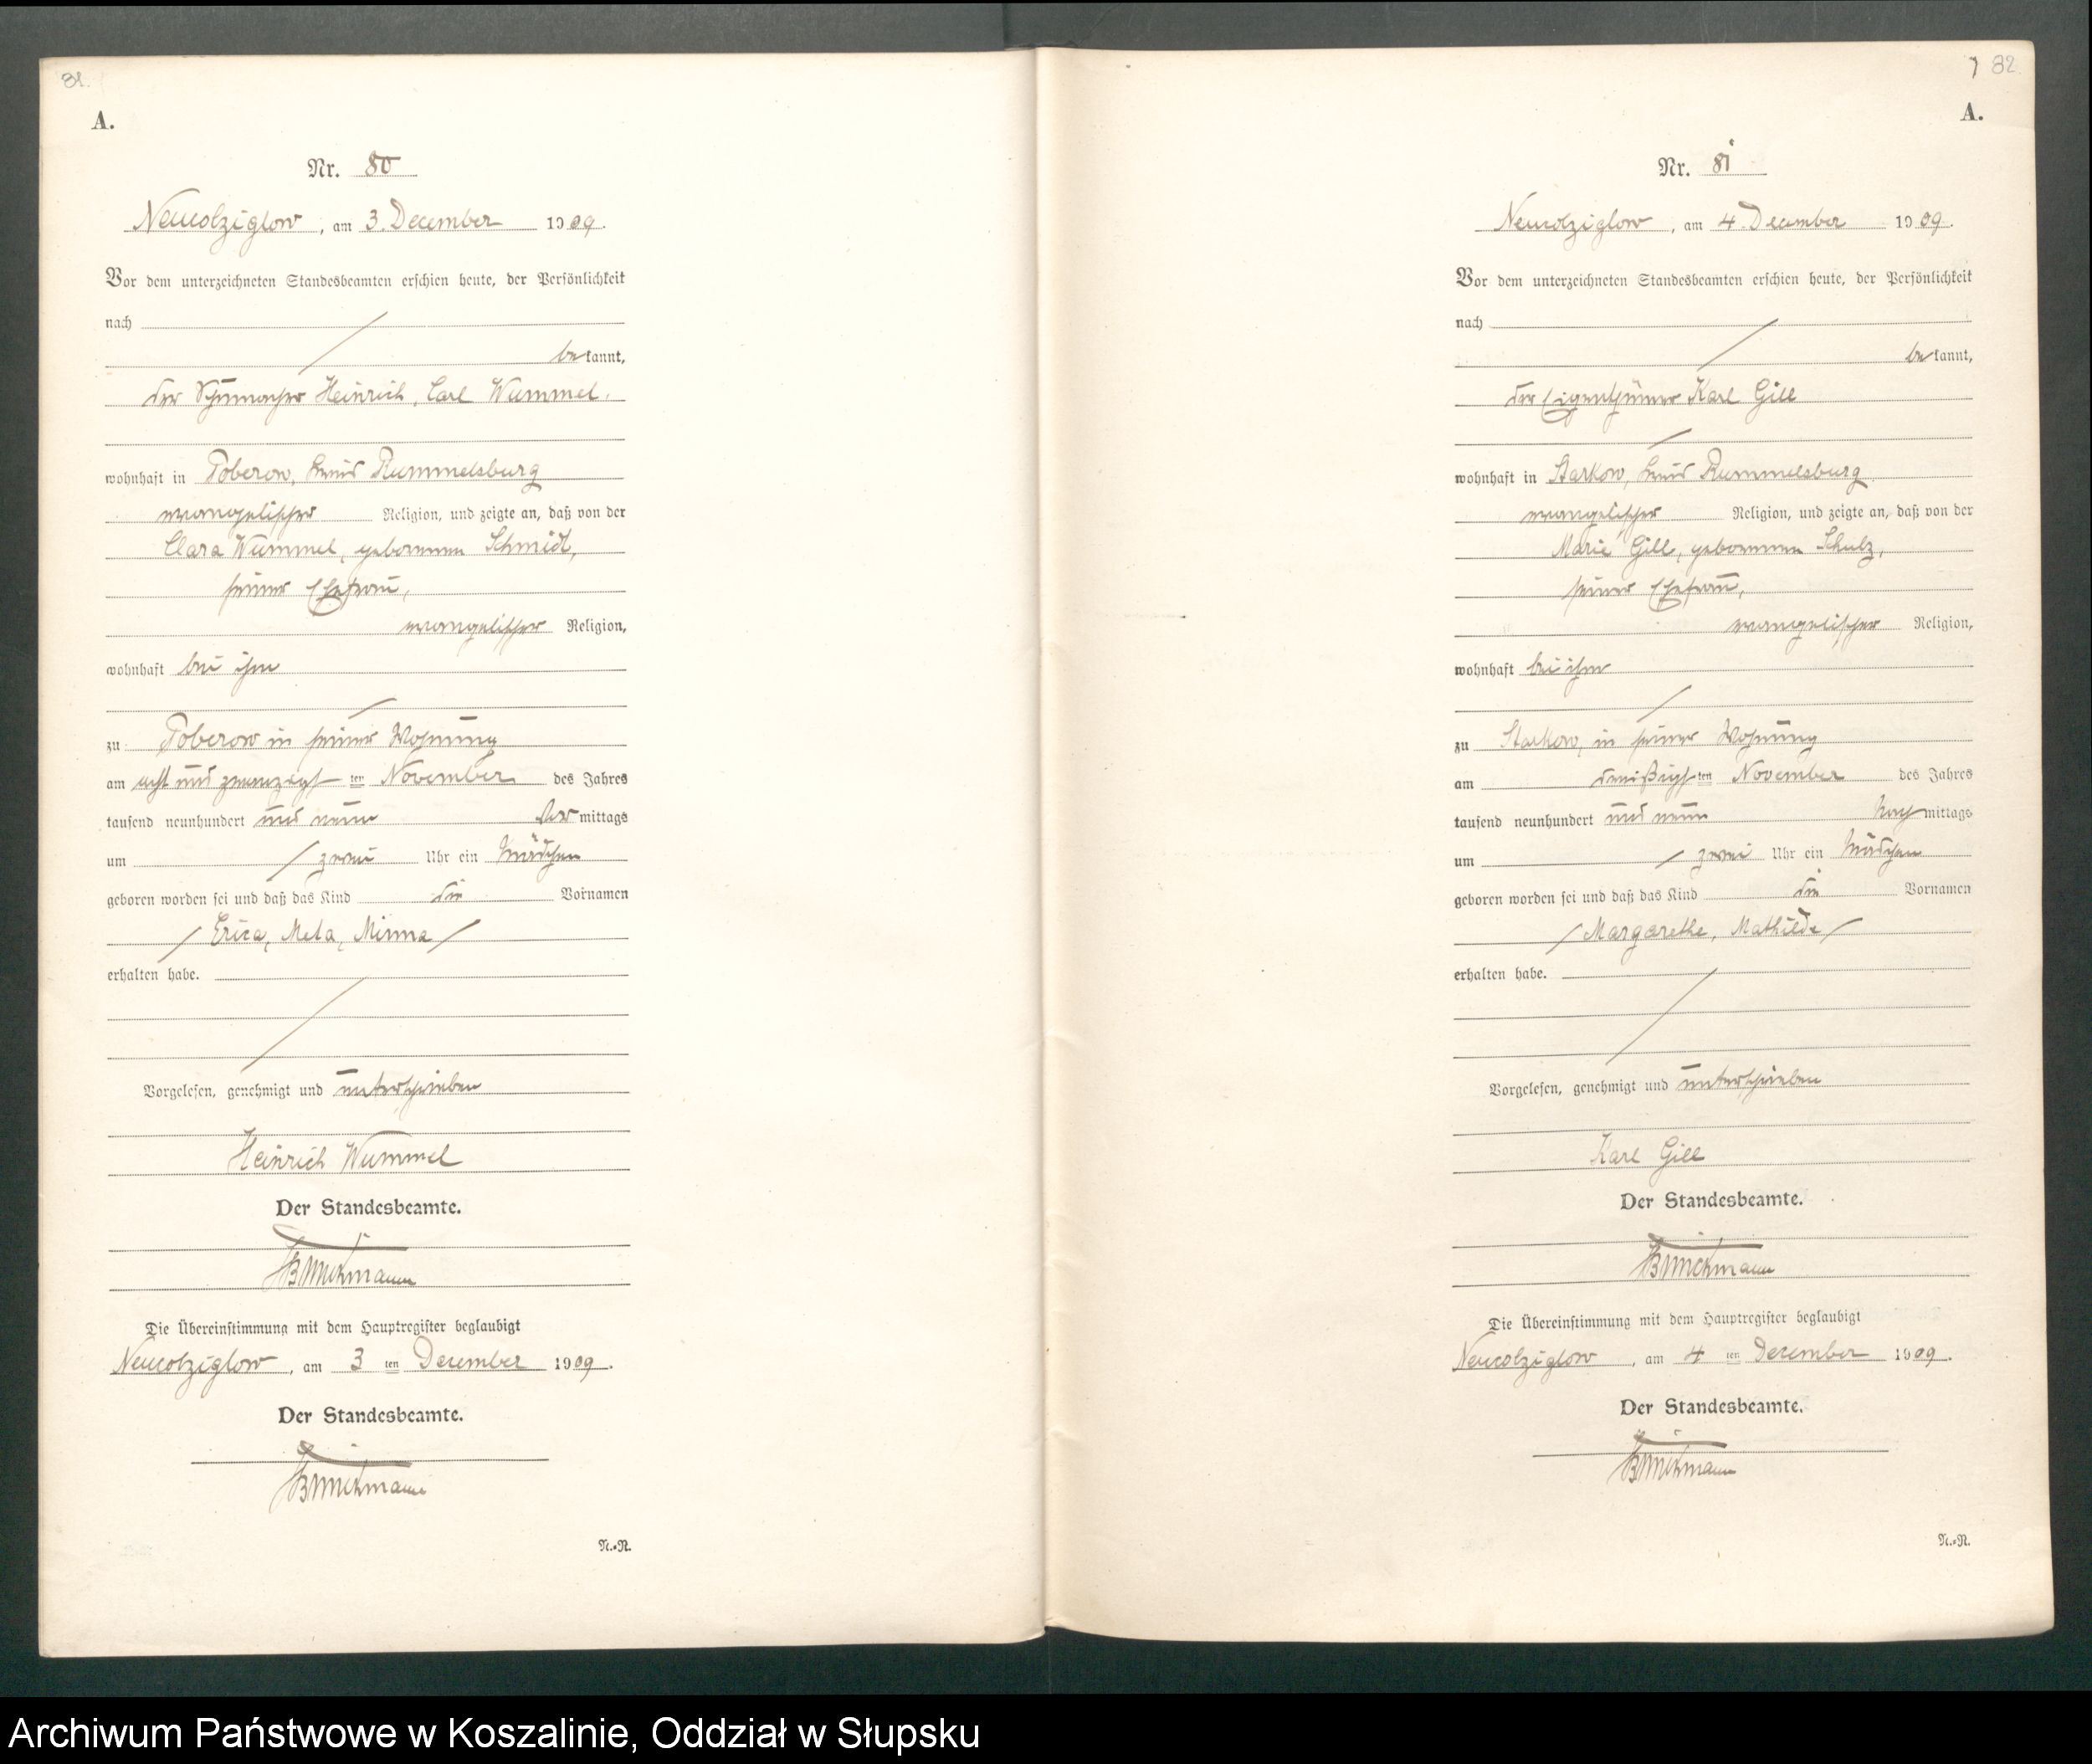 31.
A.
Nr. 80
Neucolziglow, am 3. December 1909.
Vor dem unterzeichneten Standesbeamten erschien heute, der Persönlichkeit
nach
bekannt,
der Schumacher Heinrich, Carl Wummel,
wohnhaft in Poberow, Kreis Rummelsburg
evangelischer Religion, und zeigte an, daß von der
Clara Wummel, geborenen Schmidt,
seiner Ehefrau,
evangelischer Religion,
wohnhaft bei ihm
zu Poberow in seiner Wohnung
am acht und zwanzigsten November des Jahres
tausend neunhundert und neun Vormittags
um zwei Uhr ein Mädchen
geboren worden sei und daß das Kind die Vornamen
Erica, Meta, Minna
erhalten habe.
Vorgelesen, genehmigt und unterschrieben
Heinrich Wummel
Der Standesbeamte.
Die Übereinstimmung mit dem Hauptregister beglaubigt
Neucolziglow, am 3 ten December 1909.
Der Standesbeamte.
N.=R.
32.
A.
Nr. 81
Neucolziglow, am 4. December 1909.
Vor dem unterzeichneten Standesbeamten erschien heute, der Persönlichkeit
nach
bekannt,
der Eigenthümer Karl Gill
wohnhaft in Starkow, Kreis Rummelsburg
evangelischer Religion, und zeigte an, daß von der
Marie Gill, geborenen Schulz,
seiner Ehefrau,
evangelischer Religion,
wohnhaft bei ihm
zu Starkow, in seiner Wohnung
am dreißigsten November des Jahres
tausend neunhundert und neun Nachmittags
um zwei Uhr ein Mädchen
geboren worden sei und daß das Kind die Vornamen
Margarethe, Mathilde
erhalten habe.
Vorgelesen, genehmigt und unterschrieben
Karl Gill
Der Standesbeamte.
Die Übereinstimmung mit dem Hauptregister beglaubigt
Neucolziglow, am 4 ten December 1909.
Der Standesbeamte.
N.=R.
Archiwum Państwowe w Koszalinie, Oddział w Słupsku